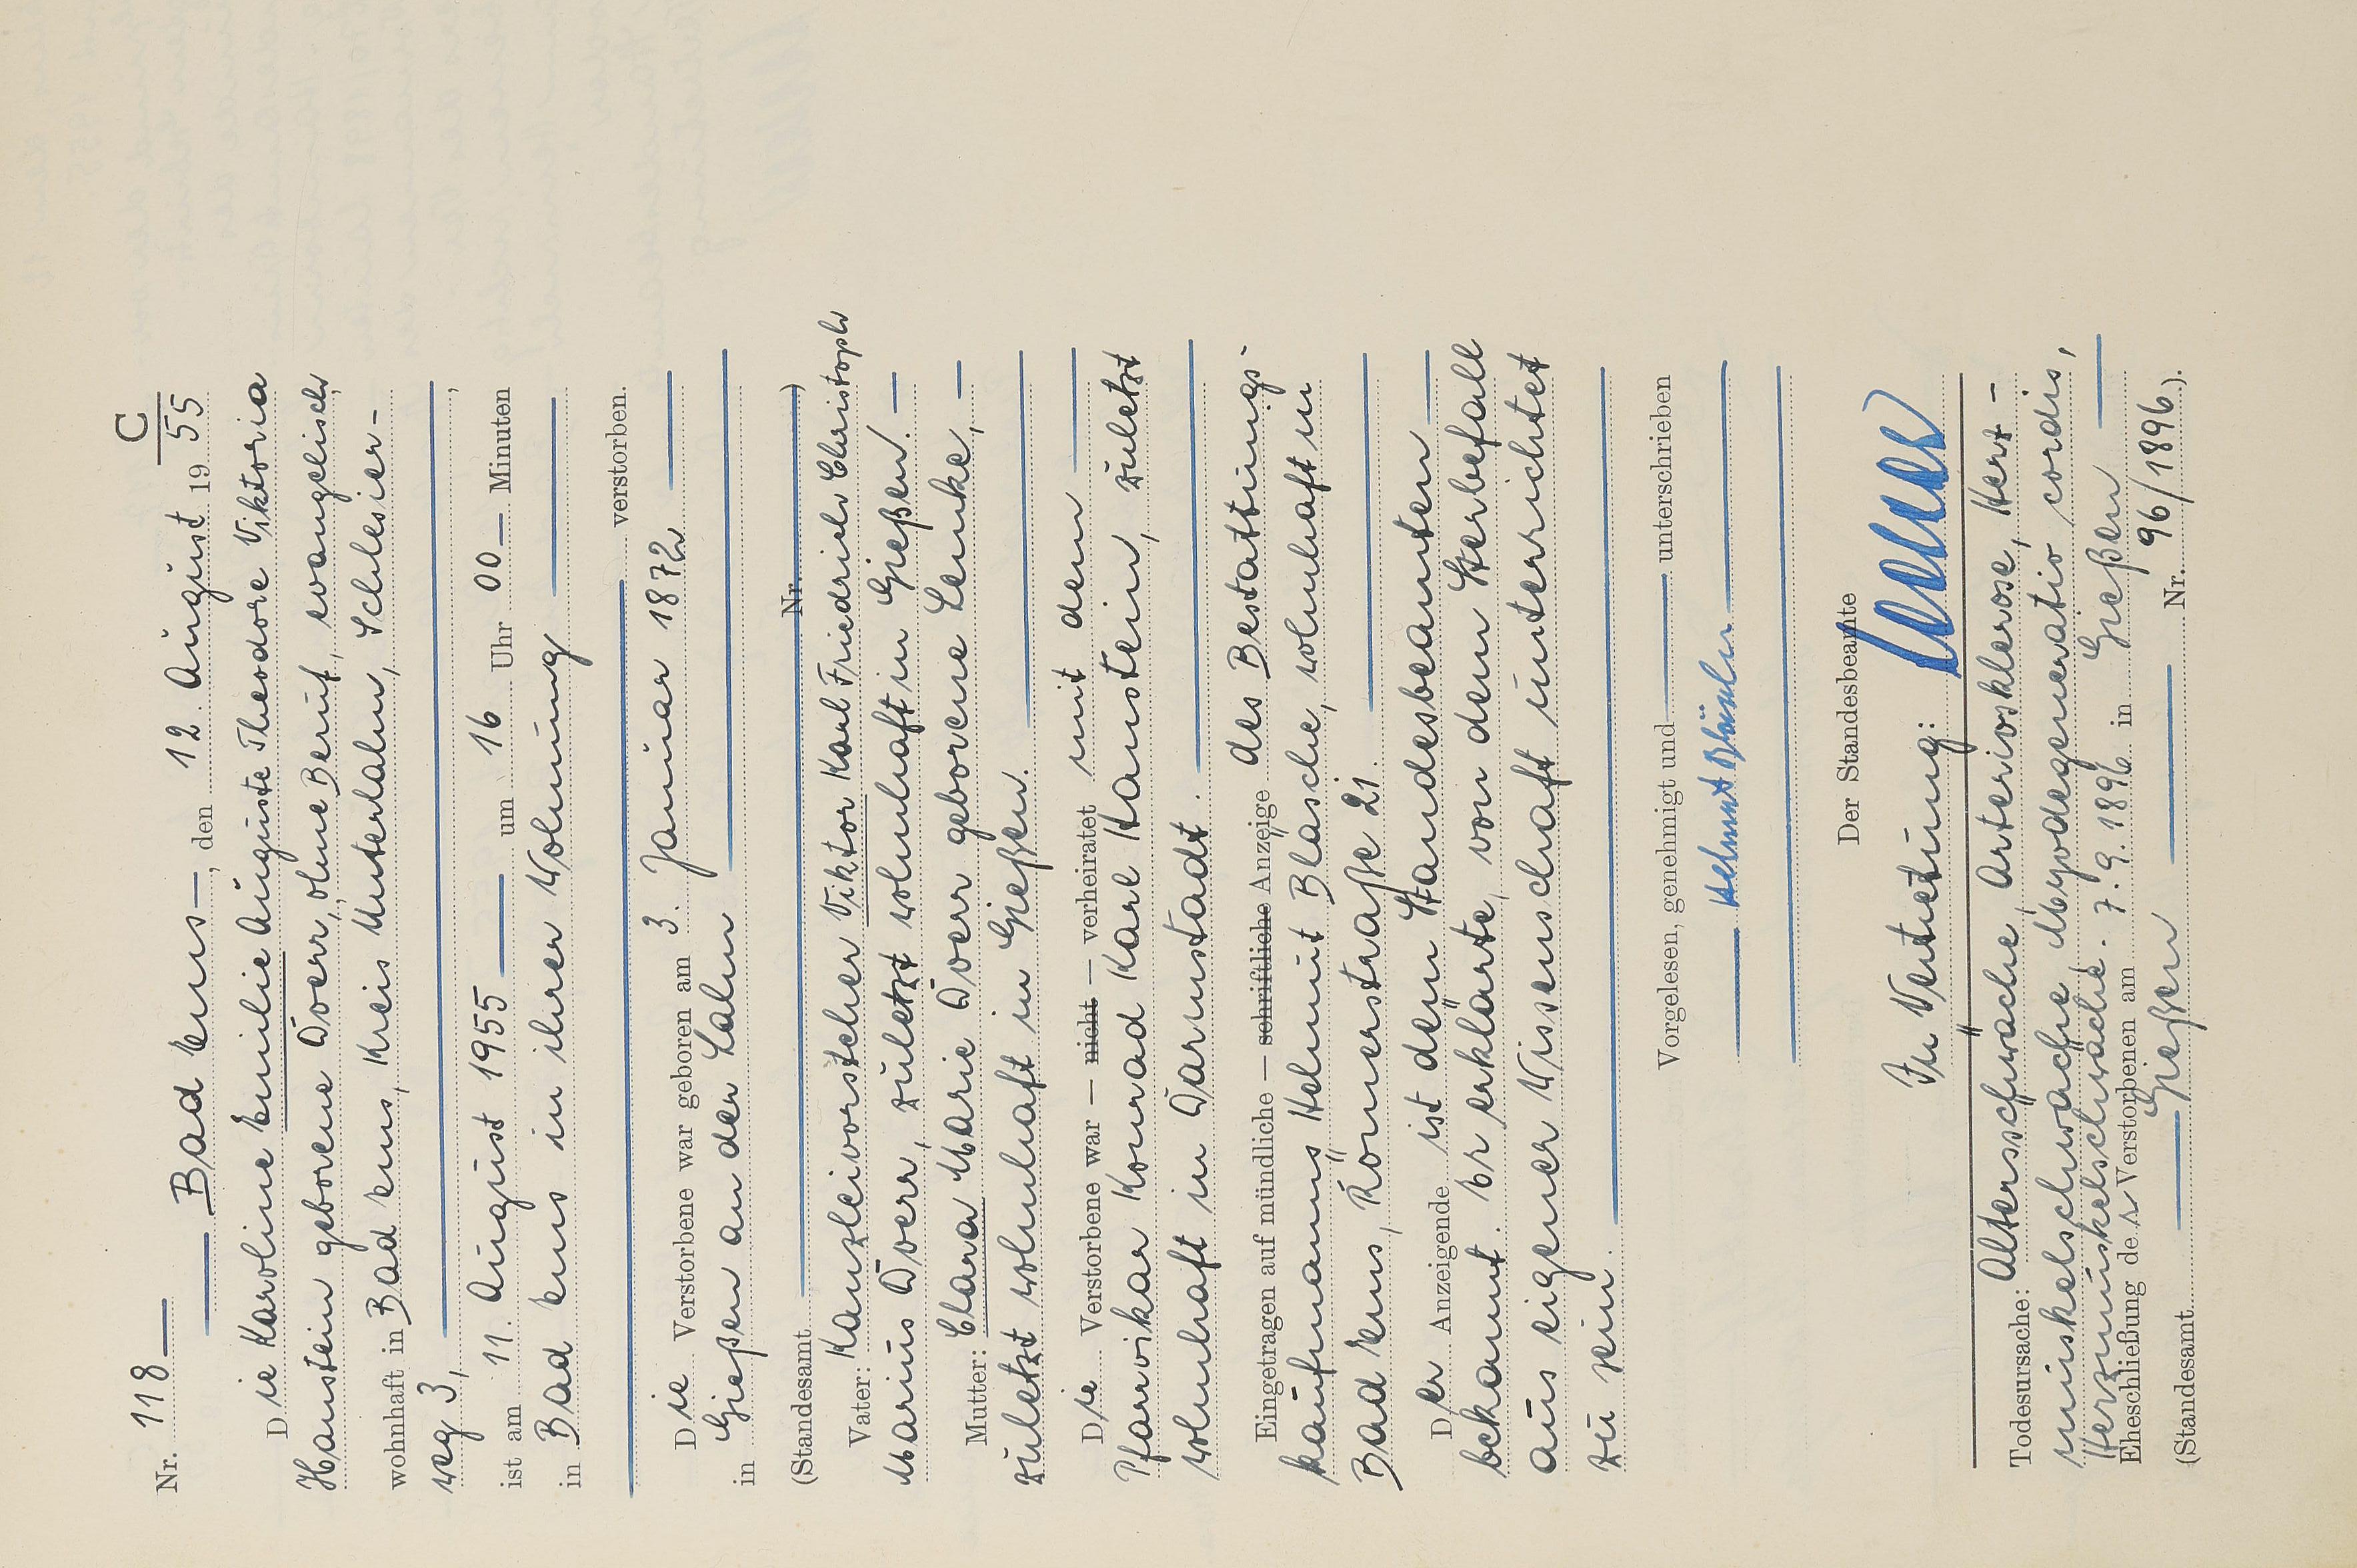 C
Nr. 118
Bad Ems, den 12. August 1955
Die Karoline Emilie Auguste Theodore Viktoria
Hanstein geborene Doerr, ohne Beruf, evangelisch
wohnhaft in Bad Ems, Kreis Unterlahn, Schlesier-
weg 3,
ist am 11. August 1955 um 16 Uhr 00 Minuten
in Bad Ems in ihrer Wohnung
verstorben.
Die Verstorbene war geboren am 3. Januar 1872
in Gießen an der Lahn
(Standesamt Nr. )
Vater: Kanzleivorsteher Viktor Karl Friedrich Christoph
Marius Doerr, zuletzt wohnhaft in Gießen.
Mutter: Clara Marie Doerr geborene Lemke,
zuletzt wohnhaft in Gießen.
Die Verstorbene war — nicht — verheiratet mit dem
Pfarrvikar Konrad Karl Hanstein, zuletzt
wohnhaft in Darmstadt.
Eingetragen auf mündliche — schriftliche Anzeige des Bestattungs-
kaufmanns Helmut Blasche, wohnhaft in
Bad Ems, Römerstraße 21.
Der Anzeigende ist dem Standesbeamten
bekannt. Er erklärte, von dem Sterbefall
aus eigener Wissenschaft unterrichtet
zu sein.
Vorgelesen, genehmigt und unterschrieben
Helmut
Der Standesbeamte
In Vertretung:
Todesursache: Altersschwäche, Arteriosklerose, Herz-
muskelschwäche, Myodegeneratio cordis,
Herzmuskelschwäche.
Eheschließung der Verstorbenen am 7.9.1896 in Gießen
(Standesamt Gießen Nr. 96/1896.).